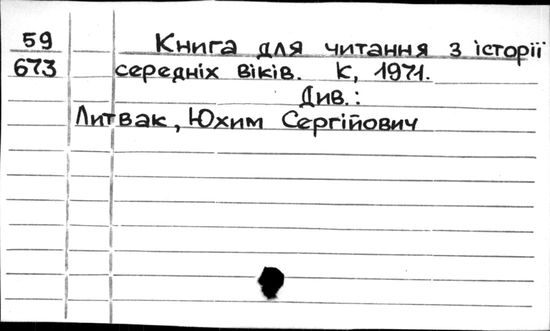 59 Книга для читання з історії
673 середніх віків. К, 1971.
Див.:
Литвак, Юхим Сергійович